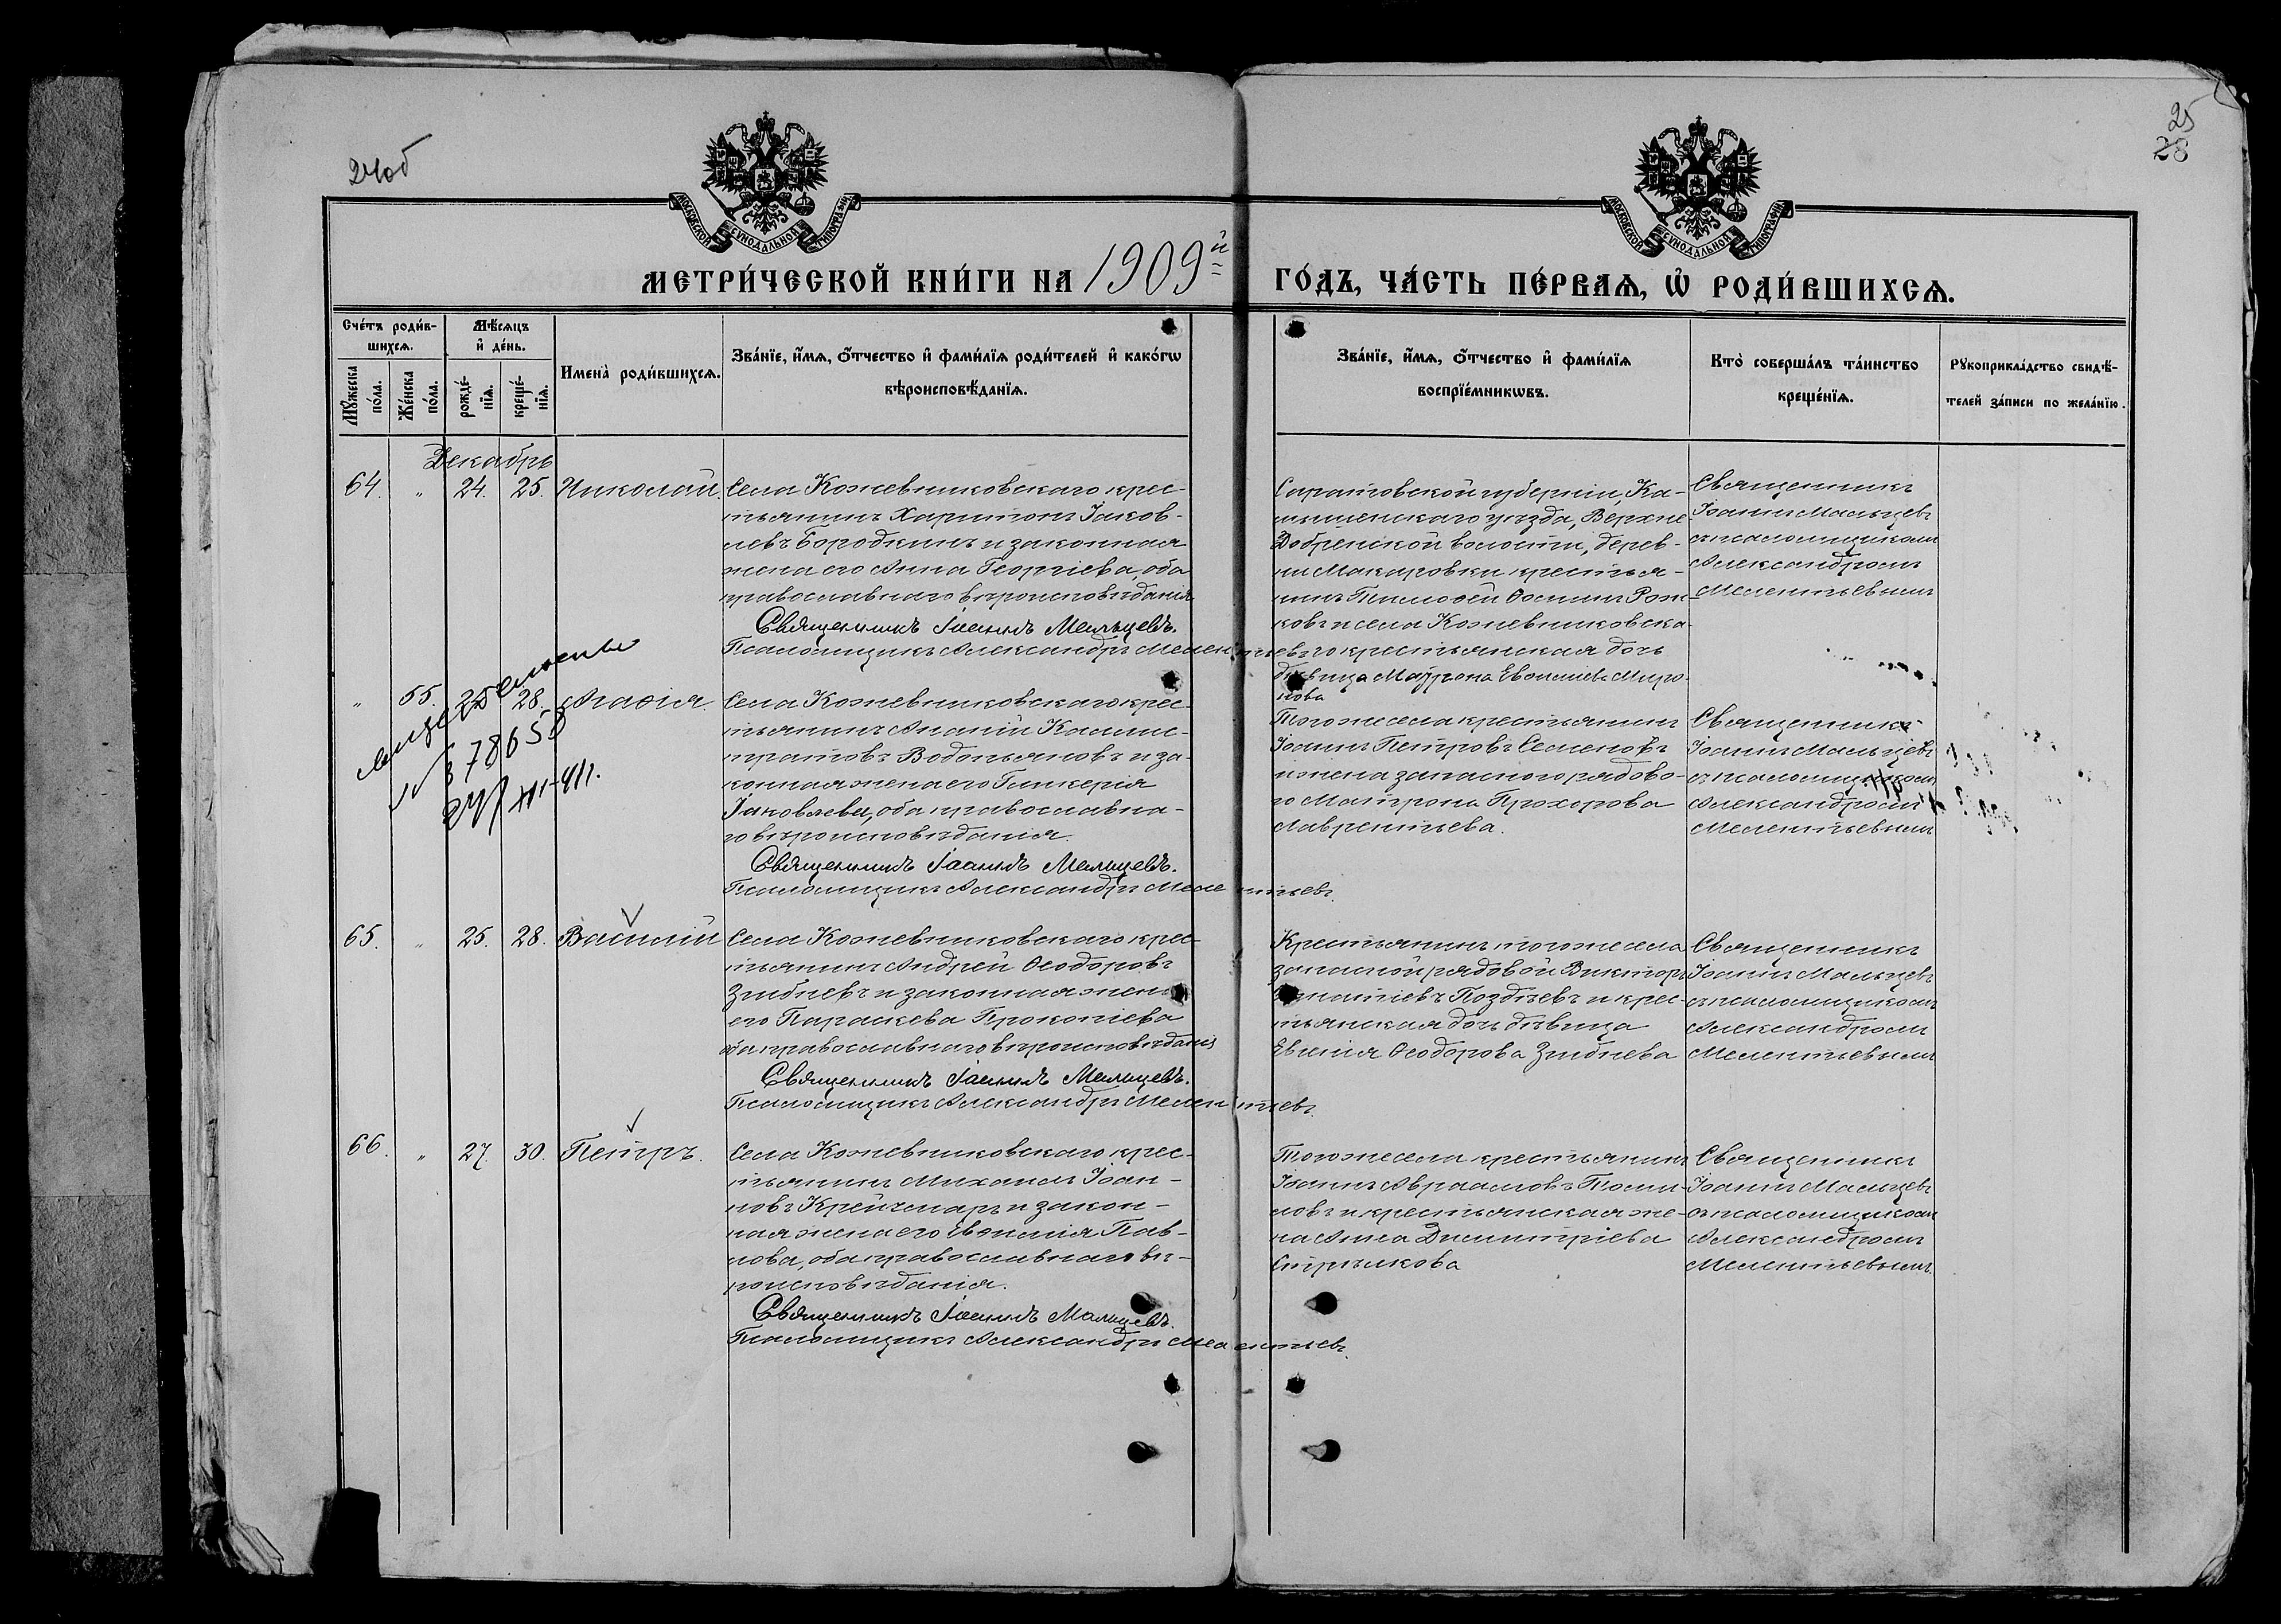 24об
25
28
МОСКОВСКОЙ СѴНОДАЛЬНОЙ ТИПОГРАФІИ
МОСКОВСКОЙ СѴНОДАЛЬНОЙ ТИПОГРАФІИ
МЕТРИ́ЧЕСКОЙ КНИ́ГИ НА 1909й
ГО́ДЪ, ЧА́СТЬ ПЕ́РВАѦ, Ѡ҆ РОДИ́ВШИХСѦ.
Сче́тъ роди́в-
шихсѧ.
Мѣ́сѧцъ
и҆ де́нь.
Имена̀ роди́вшихсѧ.
Зва́нїе, и҆́мѧ, ѻ҆́тчество и҆ фами́лїѧ роди́телей и҆ како́гѡ
вѣроисповѣ́данїѧ.
Мꙋ́жеска
по́ла.
Же́нска
по́ла.
рожде́-
нїѧ.
креще́-
нїѧ.
Зва́нїе, и҆́мѧ, ѻ҆́тчество и҆ фами́лїѧ
воспрїе́мникѡвъ.
Кто̀ соверша́лъ та́инство
креще́нїѧ.
Рꙋкоприкла́дство свидѣ́-
телей за́писи по жела́нїю.
Декабрь
64. " 24. 25. Николай.
Села Кожевниковскаго крес-
тьянинъ Харитонъ Іаков-
левъ Бородкинъ и законная
жена его Анна Георгіева, оба
православнаго вѣроисповѣданія
Священникъ Іоаннъ Мальцевъ.
Псаломщикъ Александръ Мелентьевъ
Саратовской губерніи, Ка-
мышенскаго уѣзда, Верхне-
Добренской волости, дерев-
ни Макаровки крестья-
нинъ Тимоѳей Ѳоминъ Рож-
ковъ и села Кожевниковска-
го крестьянская дочь
дѣвица Матрона Евѳиміева Миро-
нова
Священникъ
Іоаннъ Мальцевъ
съ псаломщикомъ
Александромъ
Мелентьевымъ
" 55. 25 28. Агаѳія.
378658
Села Кожевниковскаго крес-
тьянинъ Ананій Каллис-
тратовъ Водопьяновъ и за-
конная жена его Гликерія
Іаковлева, оба православна-
го вѣроисповѣданія.
Священникъ Іоаннъ Мальцевъ.
Псаломщикъ Александръ Мелентьевъ.
Того же села крестьянинъ
Іоаннъ Петровъ Семеновъ
и жена запасного рядово-
го Матрона Прохорова
Лаврентьева.
Священникъ
Іоаннъ Мальцевъ
съ псаломщикомъ
Александромъ
Мелентьевымъ
65. " 25. 28. Василій
Села Кожевниковскаго крес-
тьянинъ Андрей Ѳеодоровъ
Зибневъ и законная жена
его Параскева Прокопіева
оба православнаго вѣроисповѣданія
Священникъ Іоаннъ Мальцевъ.
Псаломщикъ Александръ Мелентьевъ.
Крестьянинъ того же села
запасной рядовой Викторъ
Поздѣевъ и крес-
тьянская дочь дѣвица
Евгенія Ѳеодорова Зибнева
Священникъ
Іоаннъ Мальцевъ
съ псаломщикомъ
Александромъ
Мелентьевымъ
66. " 27. 30. Петръ.
Села Кожевниковскаго крес-
тьянинъ Михаилъ Іоан-
новъ Крейчмаръ и закон-
ная жена его Евѳимія Пав-
лова, оба православнаго вѣ-
роисповѣданія.
Священникъ Іоаннъ Мальцевъ.
Псаломщикъ Александръ Мелентьевъ.
Того же села крестьянинъ
Іоаннъ Авраамовъ Томи-
ловъ и крестьянская же-
на Анна Димитріева
Стрѣлкова
Священникъ
Іоаннъ Мальцевъ
съ псаломщикомъ
Александромъ
Мелентьевымъ.